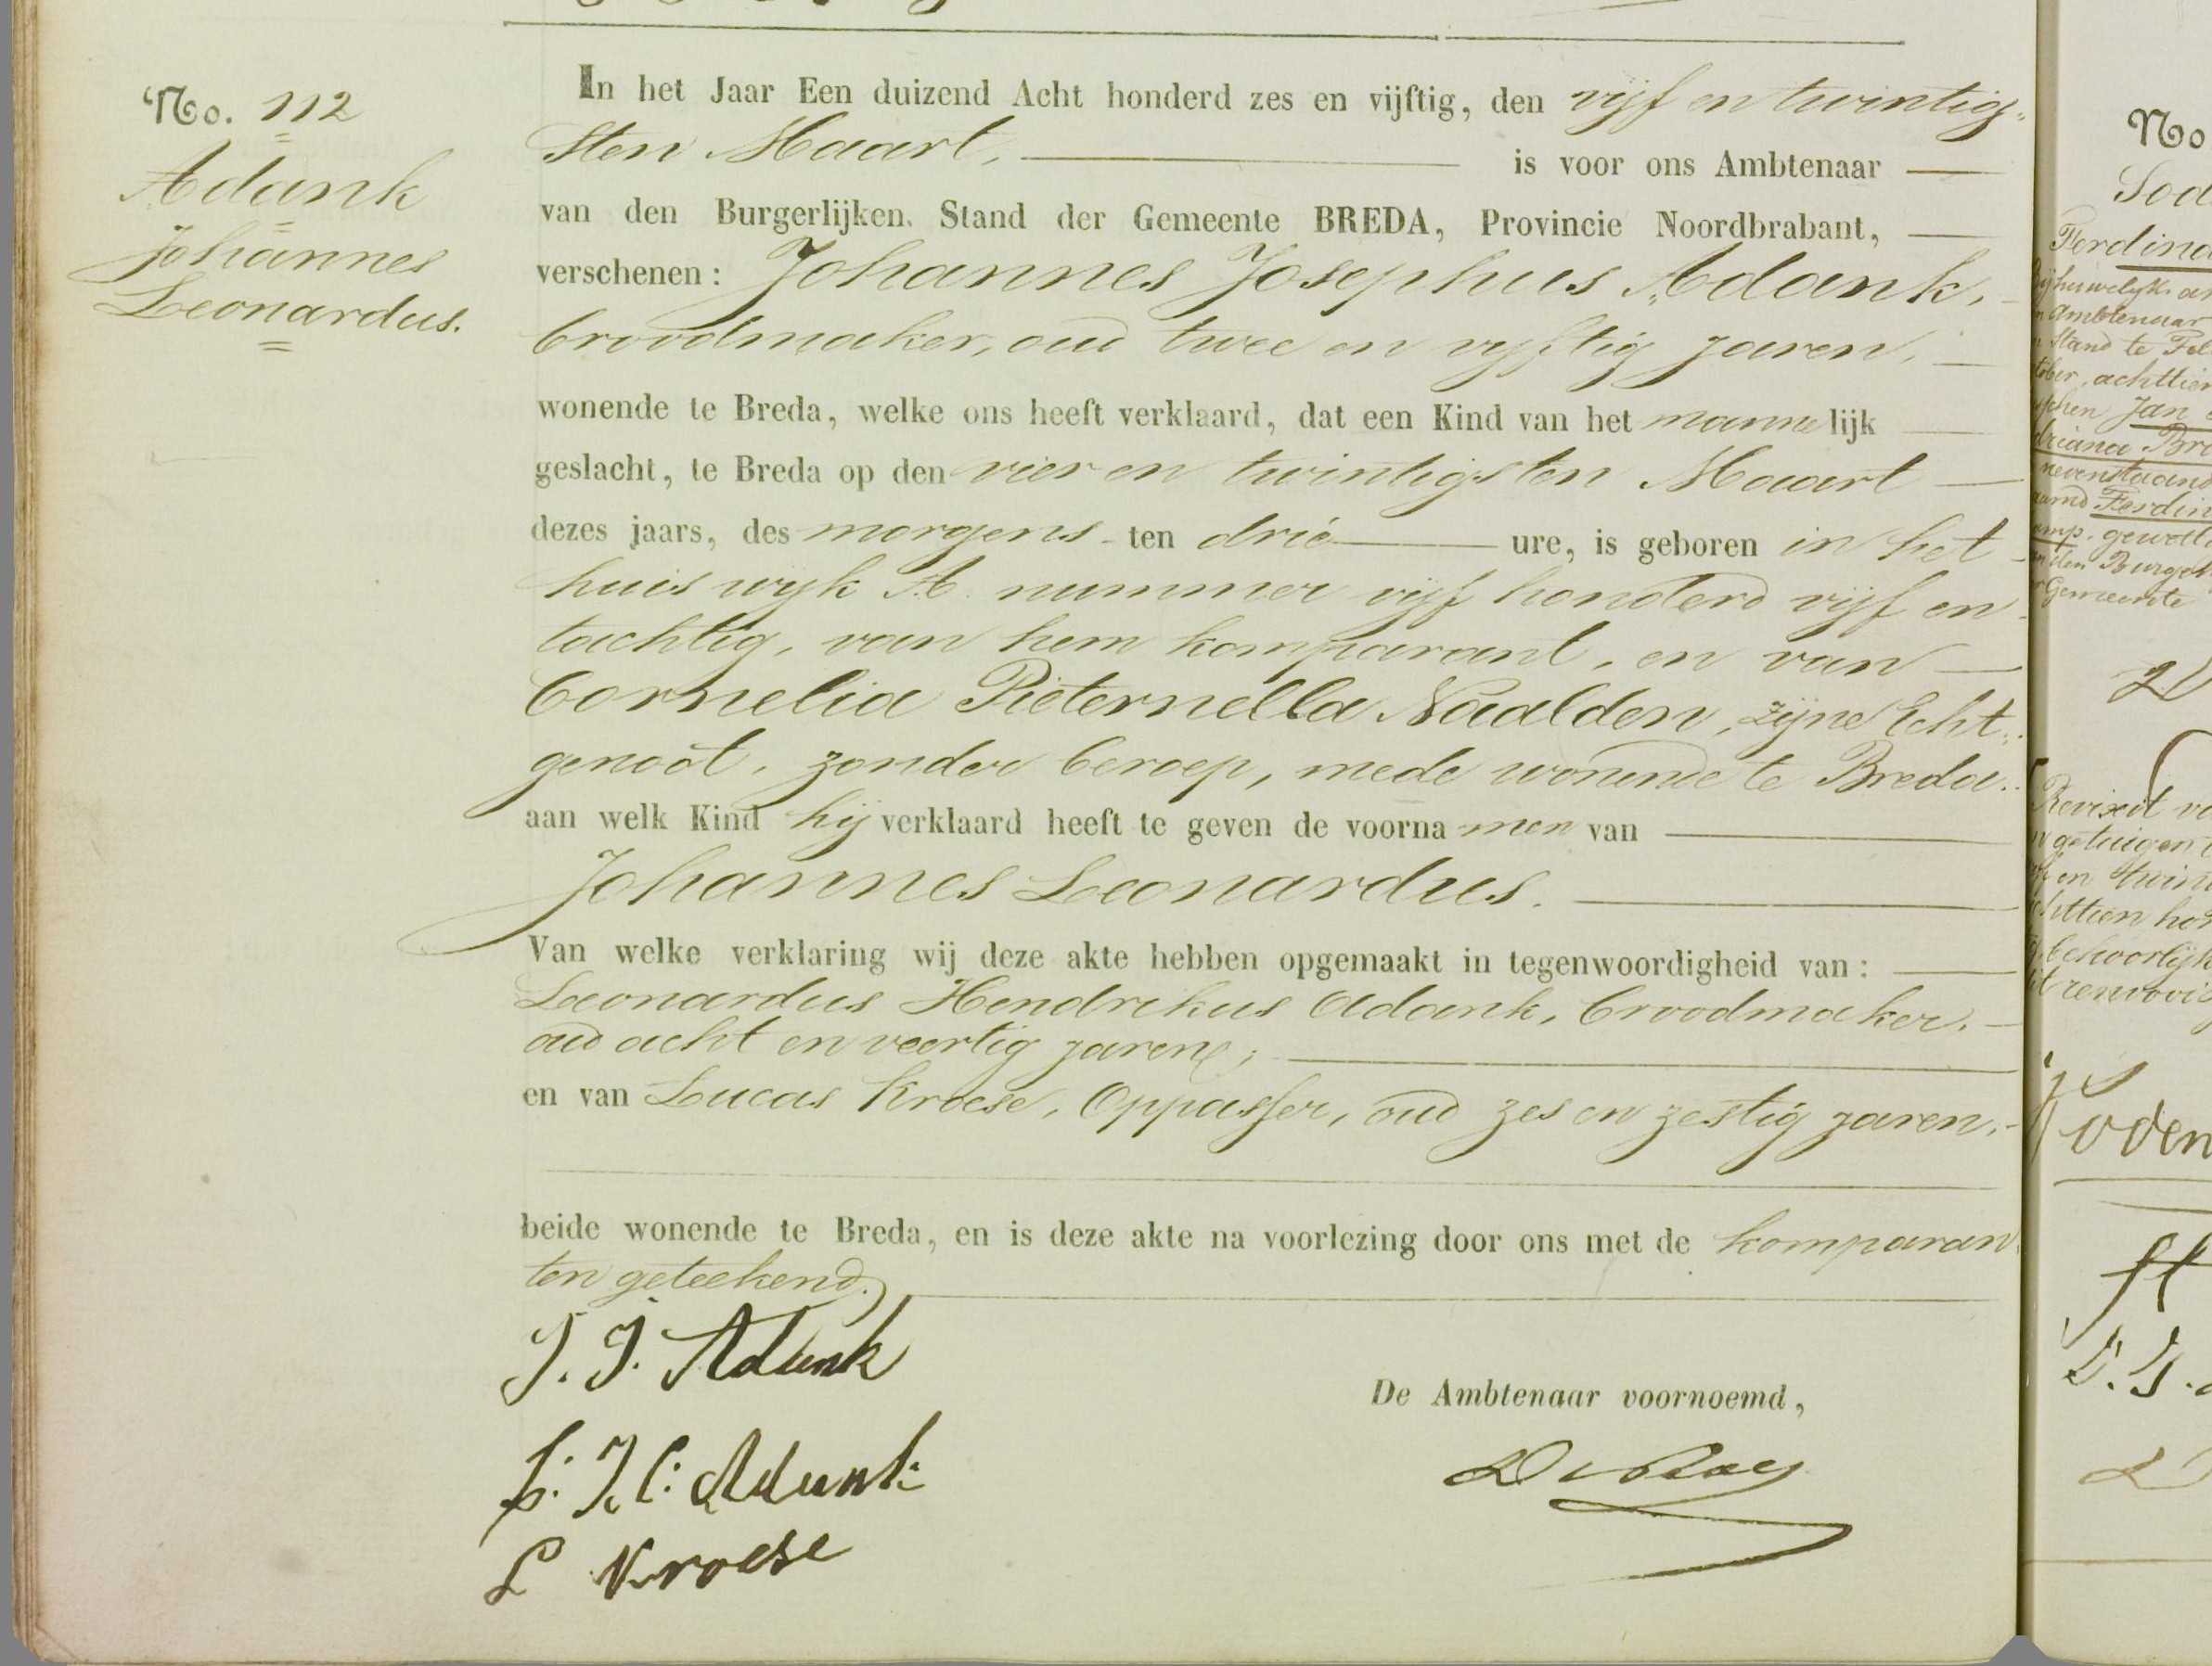 No. 112
Adank
Johannes
Leonardus.
In het Jaar Een duizend Acht honderd zes en vijftig, den vijf en twintig-
sten Maart, is voor ons Ambtenaar
van den Burgerlijken Stand der Gemeente BREDA, Provincie Noordbrabant,
verschenen: Johannes Josephus Adank,
broodmaker, oud twee en vijftig jaren,
wonende te Breda, welke ons heeft verklaard, dat een Kind van het mannelijk
geslacht, te Breda op den vier en twintigsten Maart
dezes jaars, des morgens ten drie ure, is geboren in het
huis wijk A. nummer vijf honderd vijf en
tachtig, van hem komparant, en van
Cornelia Pieternella Naalden, zijne Echt-
genoot, zonder beroep, mede wonende te Breda.
aan welk Kind hij verklaard heeft te geven de voornamen van
Johannes Leonardus.
Van welke verklaring wij deze akte hebben opgemaakt in tegenwoordigheid van:
Leonardus Hendrikus Adank, broodmaker,
oud acht en veertig jaren;
en van Lucas Kroese, Oppasser, oud zes en zestig jaren,
beide wonende te Breda, en is deze akte na voorlezing door ons met de komparan
ten geteekend.
J. J. Adank
De Ambtenaar voornoemd,
Adank
L Kroese
No
Ferdina
Ambtenaar
Stand te
achttien
Jan
nevenstaand
Ferdin
den Burgerl
Gemeente
getuigen
en twin
behoorlijk